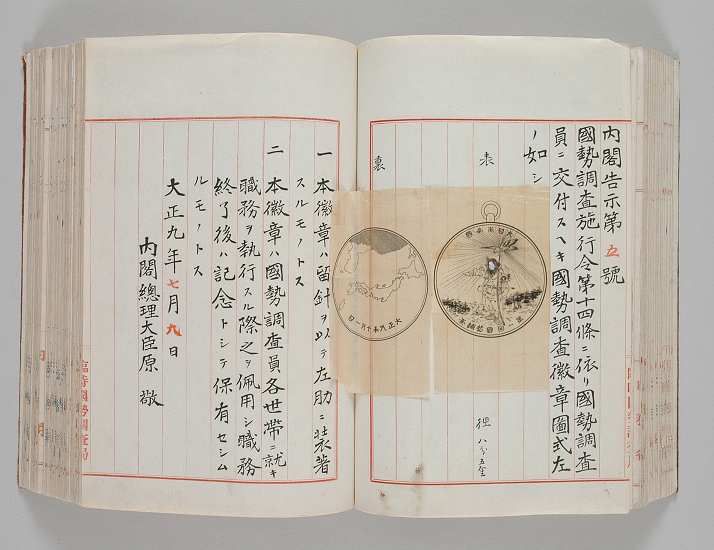 內閣告示第五號
國勢調査施行令第十四條ニ依リ國勢調査
員ニ交付スヘキ國勢調査徽章圖式左
ノ如シ
表
徑 八分五厘
裏
大正九年十月一日
一 本徽章ハ留針ヲ以テ左肋ニ裝著
スルモノトス
二 本徽章ハ國勢調査員各世帶ニ就キ
職務ヲ執行スル際之ヲ佩用シ職務
終了後ハ記念トシテ保有セシム
ルモノトス
大正九年七月九日
內閣總理大臣原 敬
臨時國勢調査局